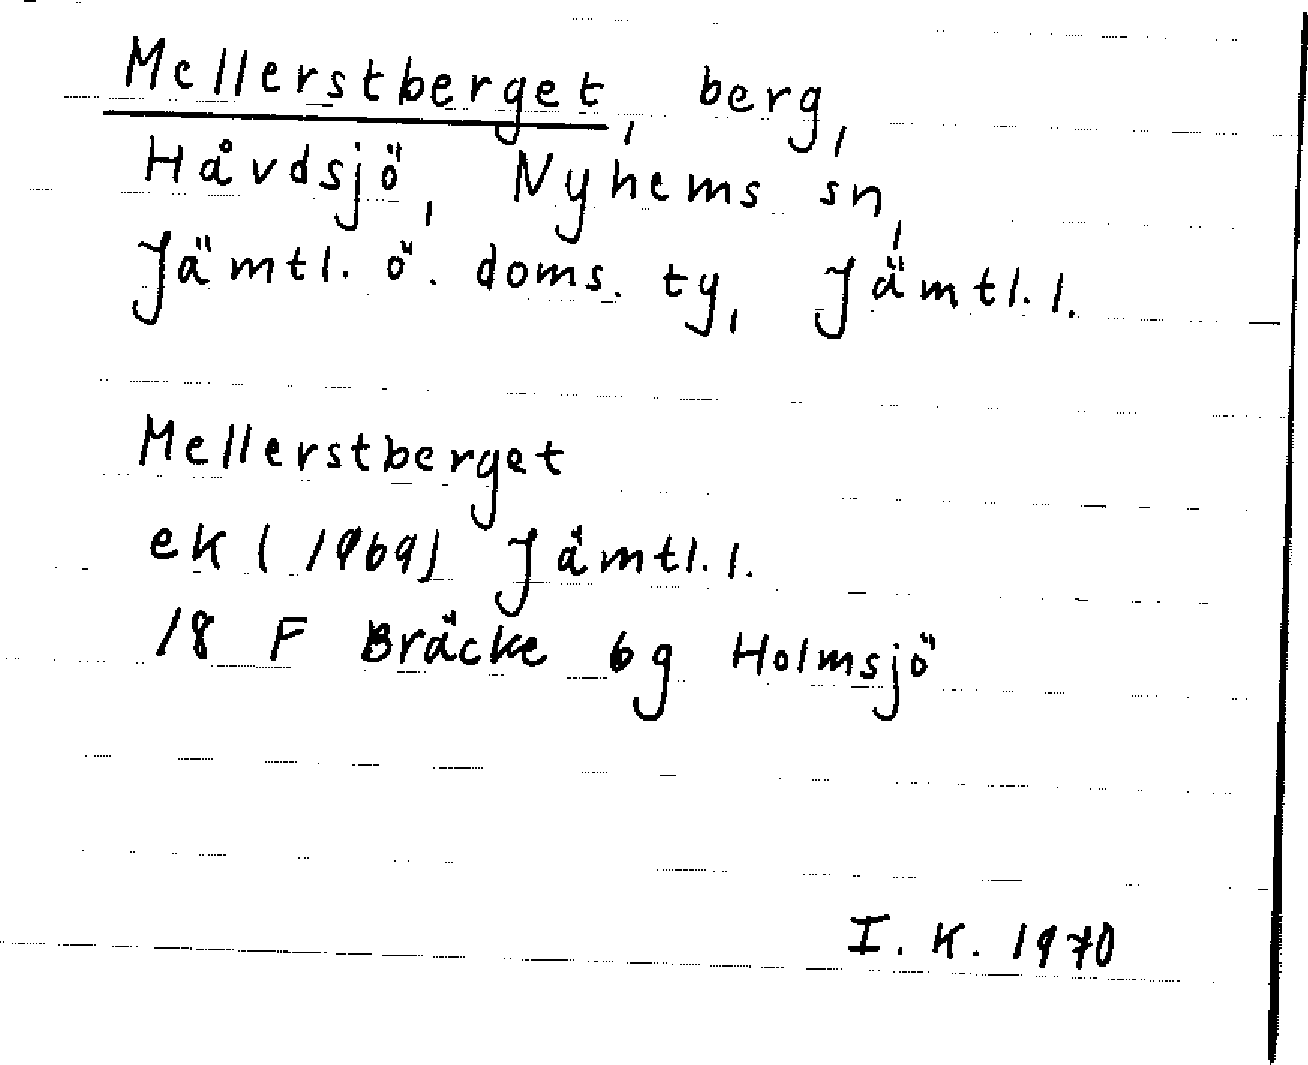 Mellerstberget, berg,
Håvdsjö, Nyhems sn,
Jämtl. ö. doms. ty, Jämtl. l.
Mellerstberget
ek (1969) Jämtl. l.
18 F Bräcke 6g Holmsjö
I. K. 1970